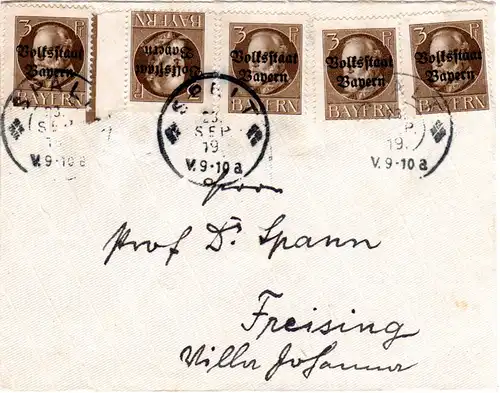 3 Pf 3 Pf 3 Pf 3 Pf 3 Pf
Volksstaat Bayern Volksstaat Bayern Volksstaat Bayern Volksstaat Bayern Volksstaat Bayern
BAYERN BAYERN BAYERN BAYERN BAYERN
SPALT SPALT
23. SEP. 19. 23. SEP. 19.
V. 9-10 a V. 9-10 a V. 9-10 a
Herrn
Prof Dr. Spann
Freising
Villa Johanna